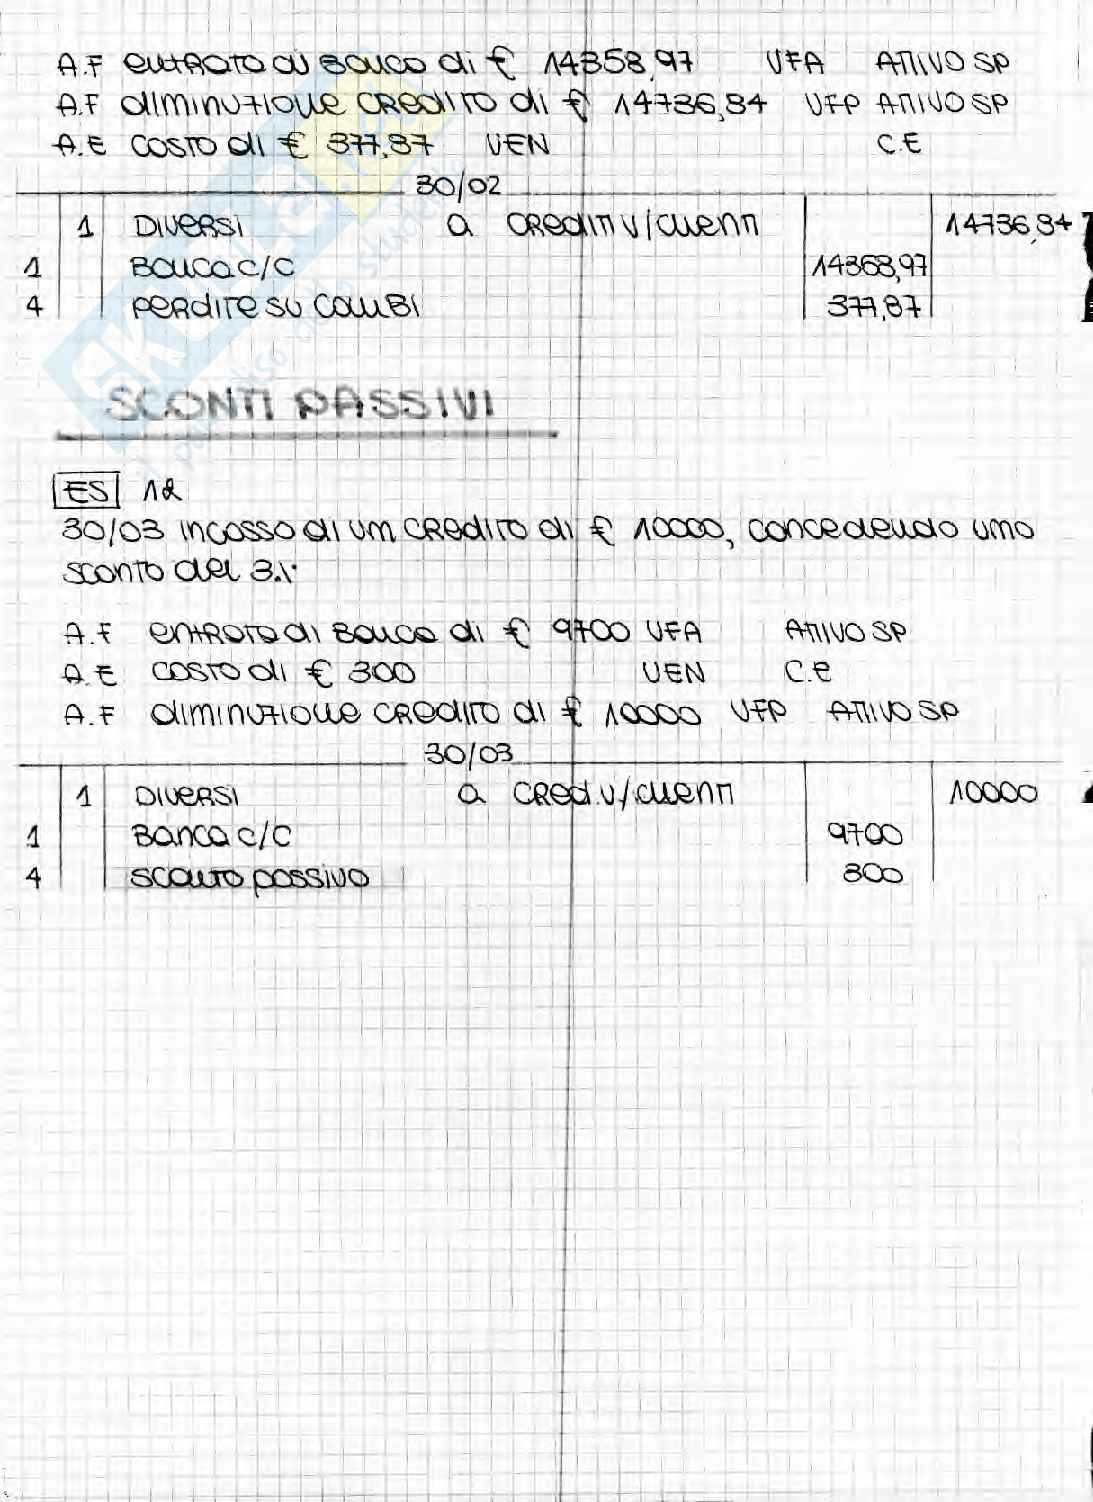 A.F entrata di Banca di € 14358,97 VFA ATTIVO SP
A.F diminuzione credito di € 14736,84 VFP ATTIVO SP
A.E costo di € 377,87 VEN C.E
30/02
1 DIVERSI a CREDITI V/CLIENTI 14736,84
1 Banca C/C 14358,97
4 PERDITE SU CAMBI 377,87
SCONTI PASSIVI
ES 12
30/03 incasso di un credito di € 10000, concedendo uno
sconto del 3%
A.F entrata di Banca di € 9700 VFA ATTIVO SP
A.E costo di € 300 VEN C.E
A.F diminuzione credito di € 10000 VFP ATTIVO SP
30/03
1 DIVERSI a CRED.V/CLIENTI 10000
1 Banca C/C 9700
4 sconto passivo 300